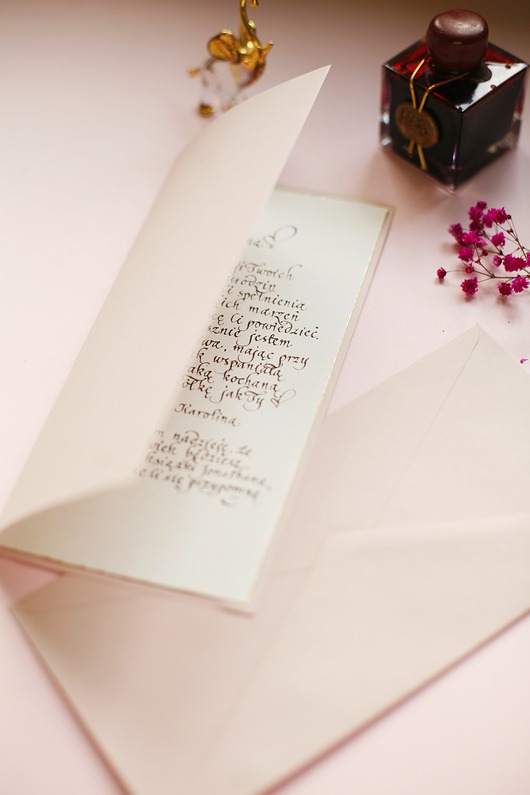 na
ji Twoich
rodzin
i spełnienia
ich marzeń
ę Ci powiedzieć,
znie jestem
wa, mając przy
k wspaniałą
aką kochaną
tkę jak Ty
Karolina
m nadzieję, że
będziesz
książki Jonathana,
ci się przypomnę